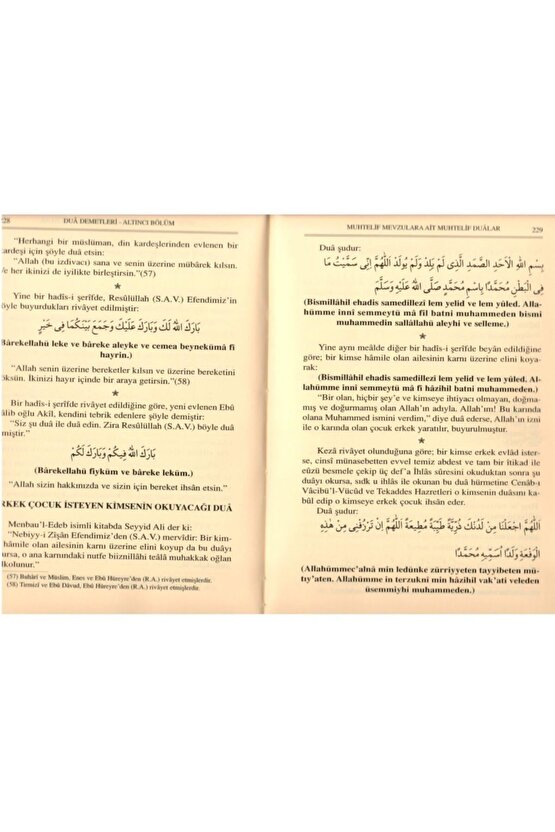 228 DUÂ DEMETLERİ - ALTINCI BÖLÜM
"Herhangi bir müslüman, din kardeşlerinden evlenen bir
kardeşi için şöyle duâ etsin:
"Allah (bu izdivacı) sana ve senin üzerine mübârek kılsın.
Ve her ikinizi de iyilikte birleştirsin."(57)
*
Yine bir hadîs-i şerîfde, Resûlüllah (S.A.V.) Efendimiz'in
şöyle buyurdukları rivâyet edilmiştir:
بَارَكَ اللهُ لَكَ وَبَارَكَ عَلَيْكَ وَجَمَعَ بَيْنَكُمَا فِى خَيْرٍ
(Bârekellahü leke ve bâreke aleyke ve cemea beynekümâ fî
hayrin.)
"Allah senin üzerine bereketler kılsın ve üzerine bereketini
döksün. İkinizi hayır içinde bir araya getirsin."(58)
*
Bir hadîs-i şerîfde rivâyet edildiğine göre, yeni evlenen Ebû
Tâlib oğlu Akîl, kendini tebrik edenlere şöyle demiştir:
"Siz şu duâ ile duâ edin. Zira Resûlüllah (S.A.V.) böyle duâ
etmiştir."
بَارَكَ اللهُ فِيكُمْ وَبَارَكَ لَكُمْ
(Bârekellahu fîyküm ve bâreke leküm.)
"Allah sizin hakkınızda ve sizin için bereket ihsân etsin."
ERKEK ÇOCUK İSTEYEN KİMSENİN OKUYACAĞI DUÂ
Menbau'l-Edeb isimli kitabda Seyyid Ali der ki:
"Nebiyy-i Zîşân Efendimiz'den (S.A.V.) mervîdir: Bir kim-
hâmile olan ailesinin karnı üzerine elini koyup da bu duâyı
okursa, o ana karnındaki nutfe biiznillâhi teâlâ muhakkak oğlan
kılkolunur."
(57) Buhârî ve Müslim, Enes ve Ebû Hüreyre'den (R.A.) rivâyet etmişlerdir.
(58) Tirmizî ve Ebû Dâvud, Ebû Hüreyre'den (R.A.) rivâyet etmişlerdir.
MUHTELİF MEVZULARA AİT MUHTELİF DUÂLAR 229
Duâ şudur:
بِسْمِ اللهِ الْاَحَدِ الصَّمَدِ الَّذِى لَمْ يَلِدْ وَلَمْ يُولَدْ اَللّٰهُمَّ اِنِّى سَمَّيْتُ مَا
فِى الْبَطْنِ مُحَمَّدًا بِاسْمِ مُحَمَّدٍ صَلَّى اللهُ عَلَيْهِ وَسَلَّمَ
(Bismillâhil ehadis samedillezi lem yelid ve lem yûled. Alla-
hümme innî semmeytü mâ fil batni muhammeden bismi
muhammedin sallallahü aleyhi ve selleme.)
*
Yine aynı meâlde diğer bir hadîs-i şerîfde beyân edildiğine
göre; bir kimse hâmile olan ailesinin karnı üzerine elini koya-
rak:
(Bismillâhil ehadis samedillezi lem yelid ve lem yûled. Al-
lahümme innî semmeytü mâ fî hâzihil batni muhammeden.)
"Bir olan, hiçbir şey'e ve kimseye ihtiyacı olmayan, doğma-
mış ve doğurmamış olan Allah'ın adıyla. Allah'ım! Bu karında
olana Muhammed adını verdim," diye duâ ederse, Allah'ın izni
ile o karında olan çocuk erkek yaratılır, buyurulmuştur.
*
Kezâ rivâyet olunduğuna göre; bir kimse erkek evlâd ister-
se, cinsî münasebetten evvel temiz abdest ve tam bir îtikad ile
eûzü besmele çekip üç def'a İhlâs sûresini okuduktan sonra şu
duâyı okursa, sıdk u ihlâs ile okunan bu duâ hürmetine Cenâb-ı
Vâcibü'l-Vücûd ve Tekaddes Hazretleri o kimsenin duâsını ka-
bûl edip o kimseye erkek çocuk ihsân eder.
Duâ şudur:
اَللّٰهُمَّ اجْعَلْنَا مِنْ لَدُنْكَ ذُرِّيَّةً طَيِّبَةً مُطِيعَةً اَللّٰهُمَّ اِنْ تَرْزُقْنِى مِنْ هٰذِهِ
الْوَقْعَةِ وَلَدًا اُسَمِّيهِ مُحَمَّدًا
(Allahümmec'alnâ min ledünke zürriyyeten tayyibeten mü-
tıy'aten. Allahümme in terzuknî min hâzihil vak'ati veleden
üsemmiyhi muhammeden.)